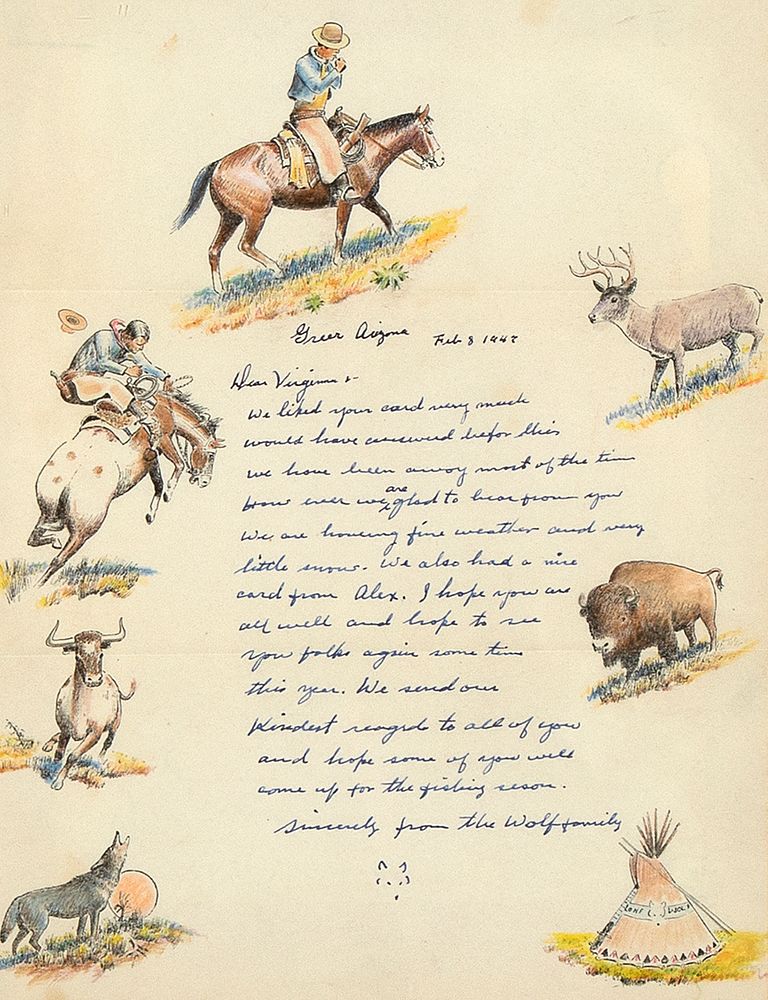 Greer Arizona Feb 8 1947
Dear Virginia :-
We liked your card very much
would have answered befor this
we have been away most of the time
How ever we are glad to hear from you
We are having fine weather and very
little snow. We also had a nice
card from Alex. I hope you are
all well and hope to see
you folks again some time
this year. We send our
Kindest reagrds to all of you
and hope some of you will
come up for the fishing seson.
Sincerely from the Wolf family